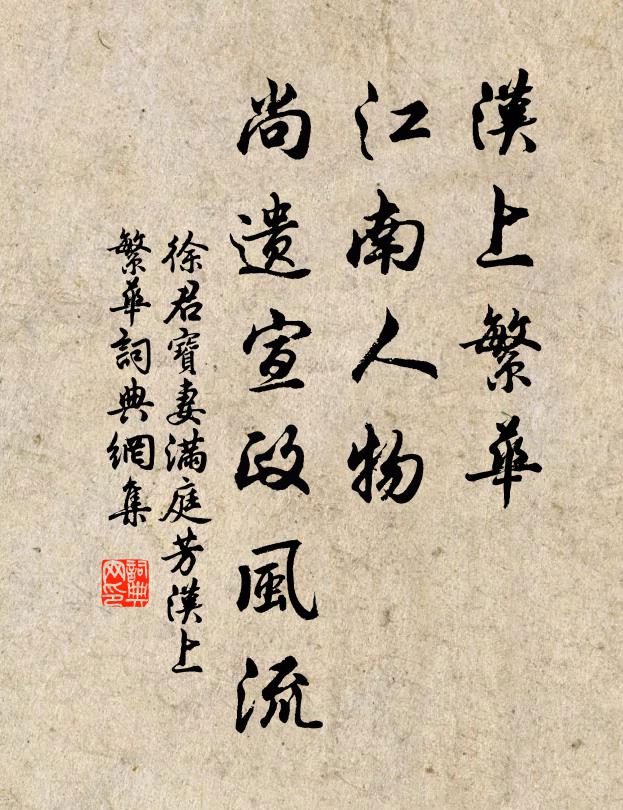 漢上繁華
江南人物
尚遺宣政風流
徐君寶妻滿庭芳漢上
繁華詞典網集
詞典
网印